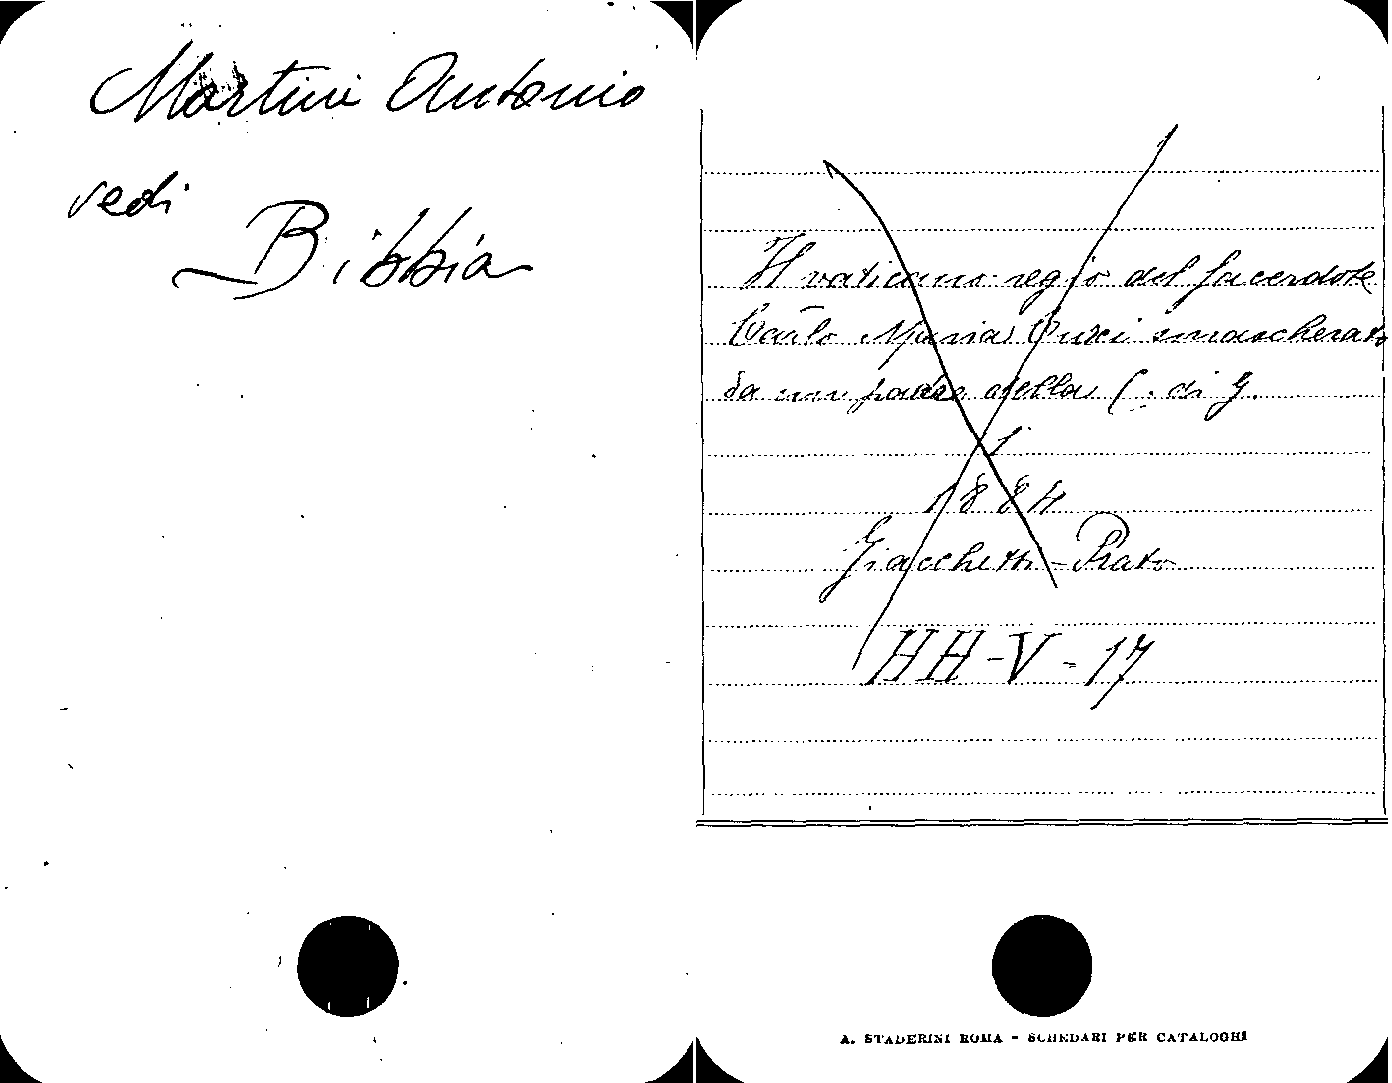 Martini Antonio
vedi
Bibbia
Il vaticano regio del sacerdote
Carlo Maria Curci smascherato
da un padre della C. di G.
1
1884
Giacchetti - Prato
HH-V-17
A. STADERINI ROMA - SCHEDARI PER CATALOGHI